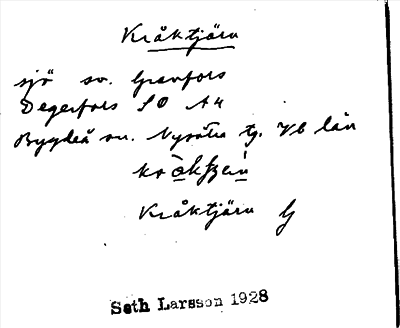 Kråktjärn
sjö sv. Granfors
Degerfors SO A4
Bygdeå sn. Nysätra tg. Vb län
Kråktjärn G
Seth Larsson 1928